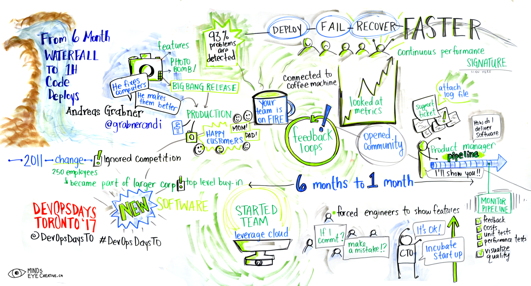 From 6 Month
WATERFALL
to 1H
Code
Deploys
Andreas Grabner
@grabnerandi
features
PHOTO
BOMB!
He fixes
computers
He makes
them better
93%
problems are
detected
BIG BANG RELEASE
PRODUCTION
HAPPY
CUSTOMERS
MOM!
DAD!
DEPLOY
FAIL
RECOVER
FASTER
continuous performance
SIGNATURE
connected to
coffee machine
Your
team is
on FIRE
!
feedback
loops
looked at
metrics
opened
community
support
ticket
attach
log file
How do I
deliver
software
Product manager
pipeline
I'll show you!!
2011
change
Ignored competition
250 employees
became part of larger corp
top level buy-in
6 months to 1 month
DEVOPSDAYS
TORONTO '17
@DevOpsDaysTO
#DevOpsDaysTO
NEW
SOFTWARE
STARTED
TEAM
leverage cloud
forced engineers to show features
If I
commit?
make a
mistake!!?
CTO
It's OK!
Incubate
start up
MONITOR
PIPELINE
feedback
costs
unit tests
performance tests
visualize
quality
MINDS
EYE CREATIVE.CA